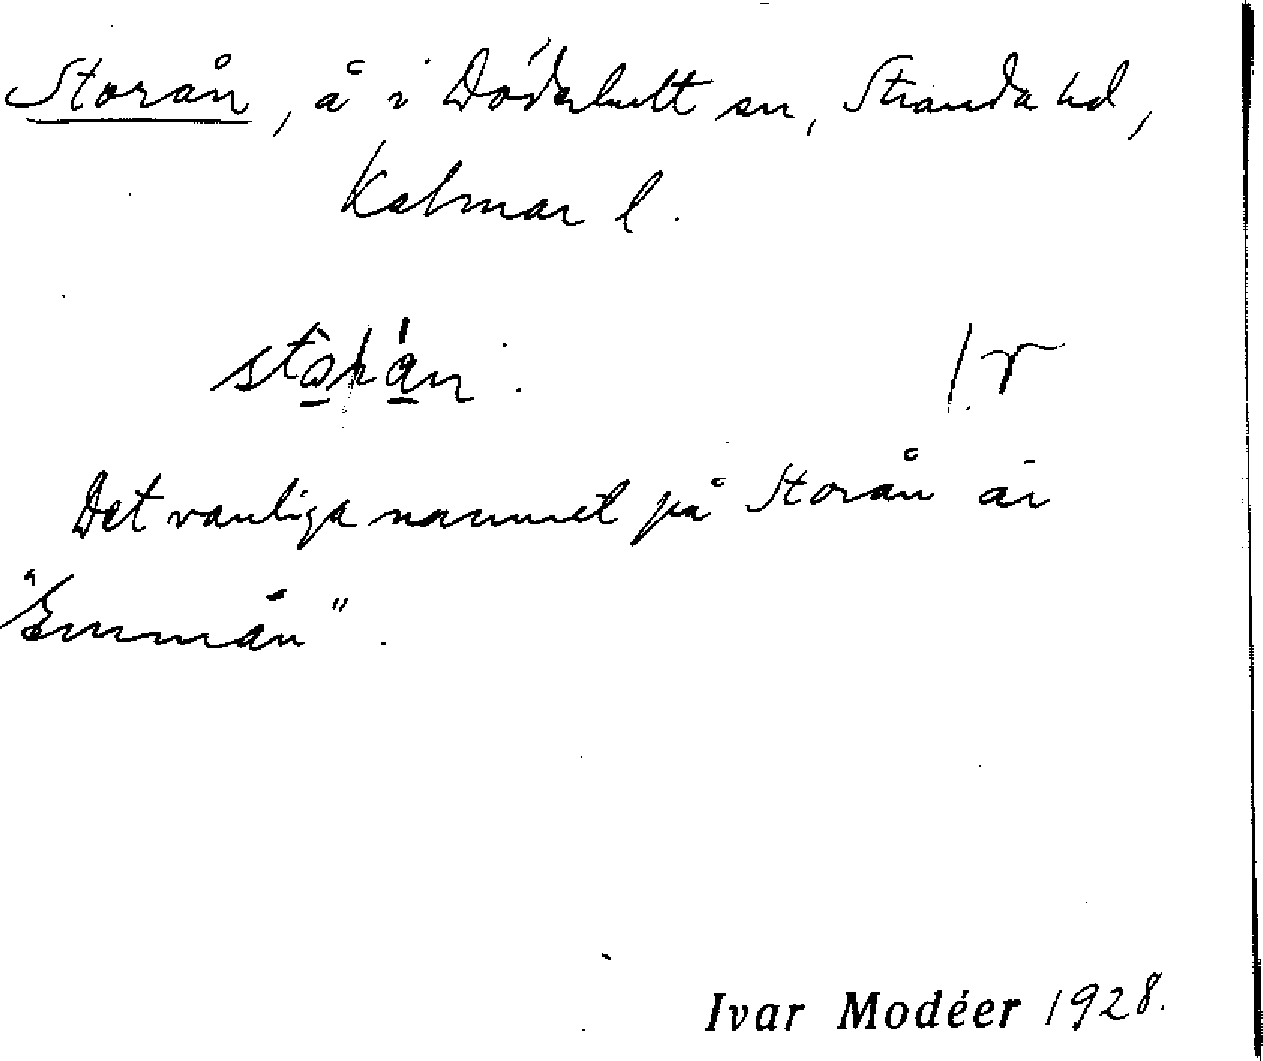 Storån, å i Döderhult sn, Stranda hd,
Kalmar l.
Det vanliga namnet på Storån är
"Emmån".
Ivar Modéer 1928.